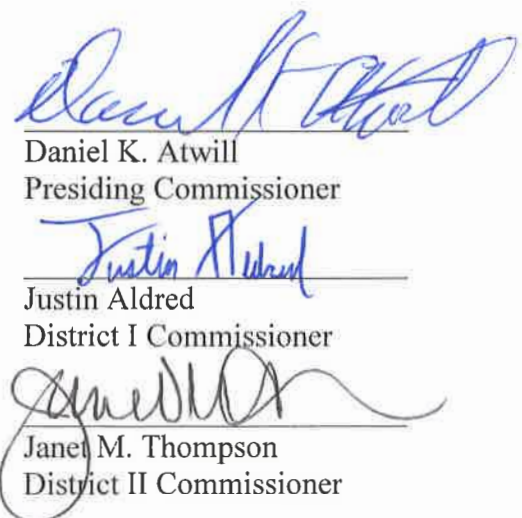 Daniel K. Atwill
Daniel K. Atwill
Presiding Commissioner
Justin Aldred
Justin Aldred
District I Commissioner
Janet M. Thompson
District II Commissioner